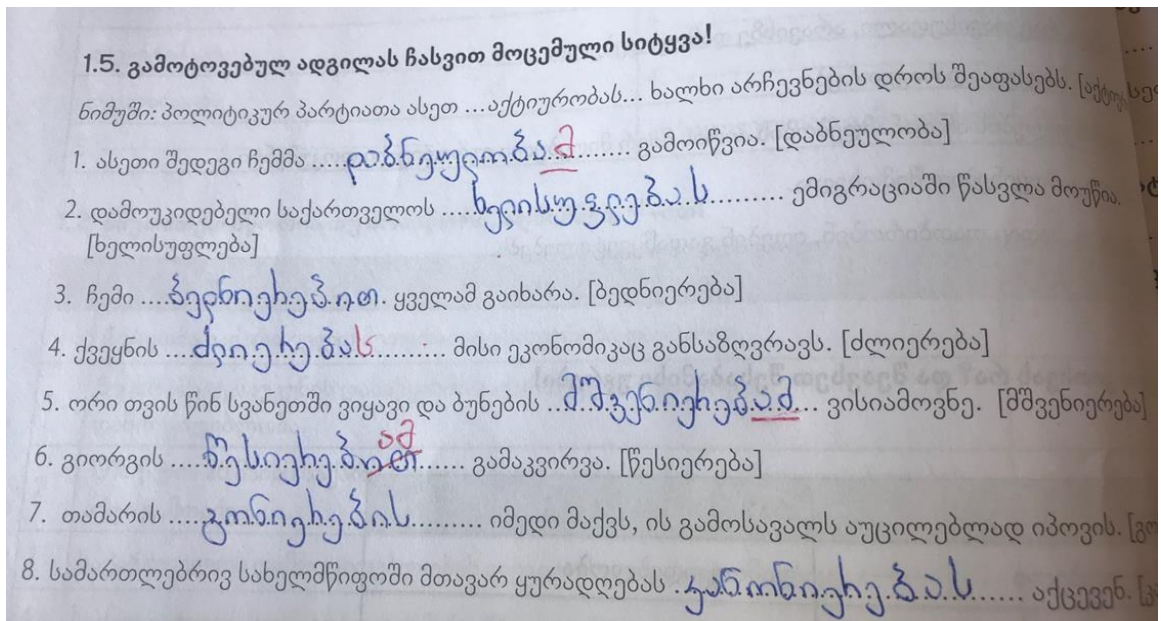 1.5. გამოტოვებულ ადგილას ჩასვით მოცემული სიტყვა!
ნიმუში: პოლიტიკურ პარტიათა ასეთ ...აქტიურობას... ხალხი არჩევნების დროს შეაფასებს.
1. ასეთი შედეგი ჩემმა ..... დაბნეულობამ ........ გამოიწვია. [დაბნეულობა]
2. დამოუკიდებელი საქართველოს .... ხელისუფლებას .......... ემიგრაციაში წასვლა მოუწია.
[ხელისუფლება]
3. ჩემი .... ბედნიერებით. ყველამ გაიხარა. [ბედნიერება]
4. ქვეყნის ... ძლიერებას .......... მისი ეკონომიკაც განსაზღვრავს. [ძლიერება]
5. ორი თვის წინ სვანეთში ვიყავი და ბუნების .. მშვენიერებამ ... ვისიამოვნე. [მშვენიერება]
ამ
6. გიორგის .... წესიერებით ...... გამაკვირვა. [წესიერება]
7. თამარის .... გონიერების ......... იმედი მაქვს, ის გამოსავალს აუცილებლად იპოვის.
8. სამართლებრივ სახელმწიფოში მთავარ ყურადღებას . კანონიერებას ...... აქცევენ.